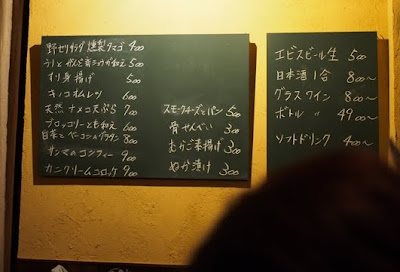 野セリサラダ 燻製タマゴ 900
うりとがんも青ジョウがわえ 500
すり身揚げ 500
キノコオムレツ 600
天然ナメコ天ぷら 700
ブロッコリーとも和え 600
白菜とベーコンのグラタン 800
サンマのコンフィー 900
カニクリームコロッケ 900
スモークチーズとパン 500
骨せんべい 300
むらご素揚げ 300
ぬか漬け 300
エビスビール生 500
日本酒1合 800〜
グラスワイン 800〜
ボトル 〃 4900〜
ソフトドリンク 400〜